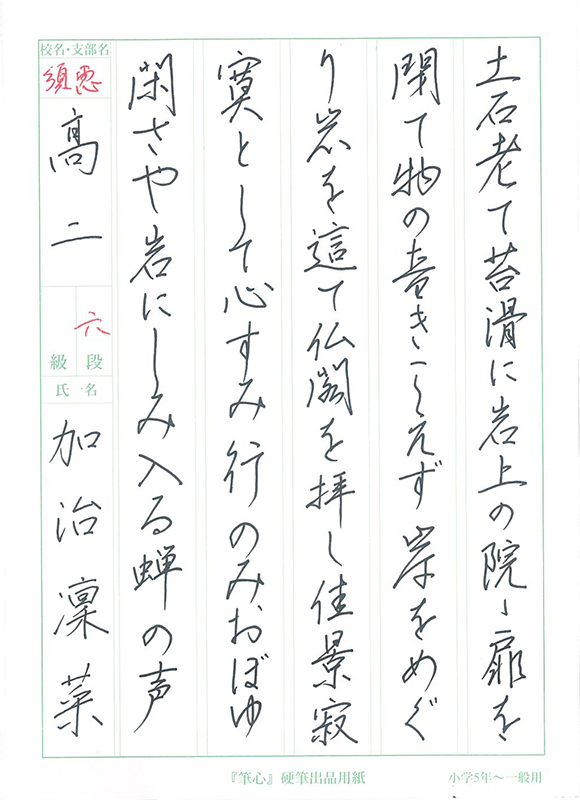 土石老て苔滑に岩上の院々扉を
閉て物の音きこえず岸をめぐ
り岩を這て仏閣を拝し佳景寂
寞として心すみ行のみおぼゆ
閑さや岩にしみ入る蝉の声
校名・支部名
須恵
高二
六
段
級
氏名
加治凜菜
『筆心』硬筆出品用紙
小学5年〜一般用